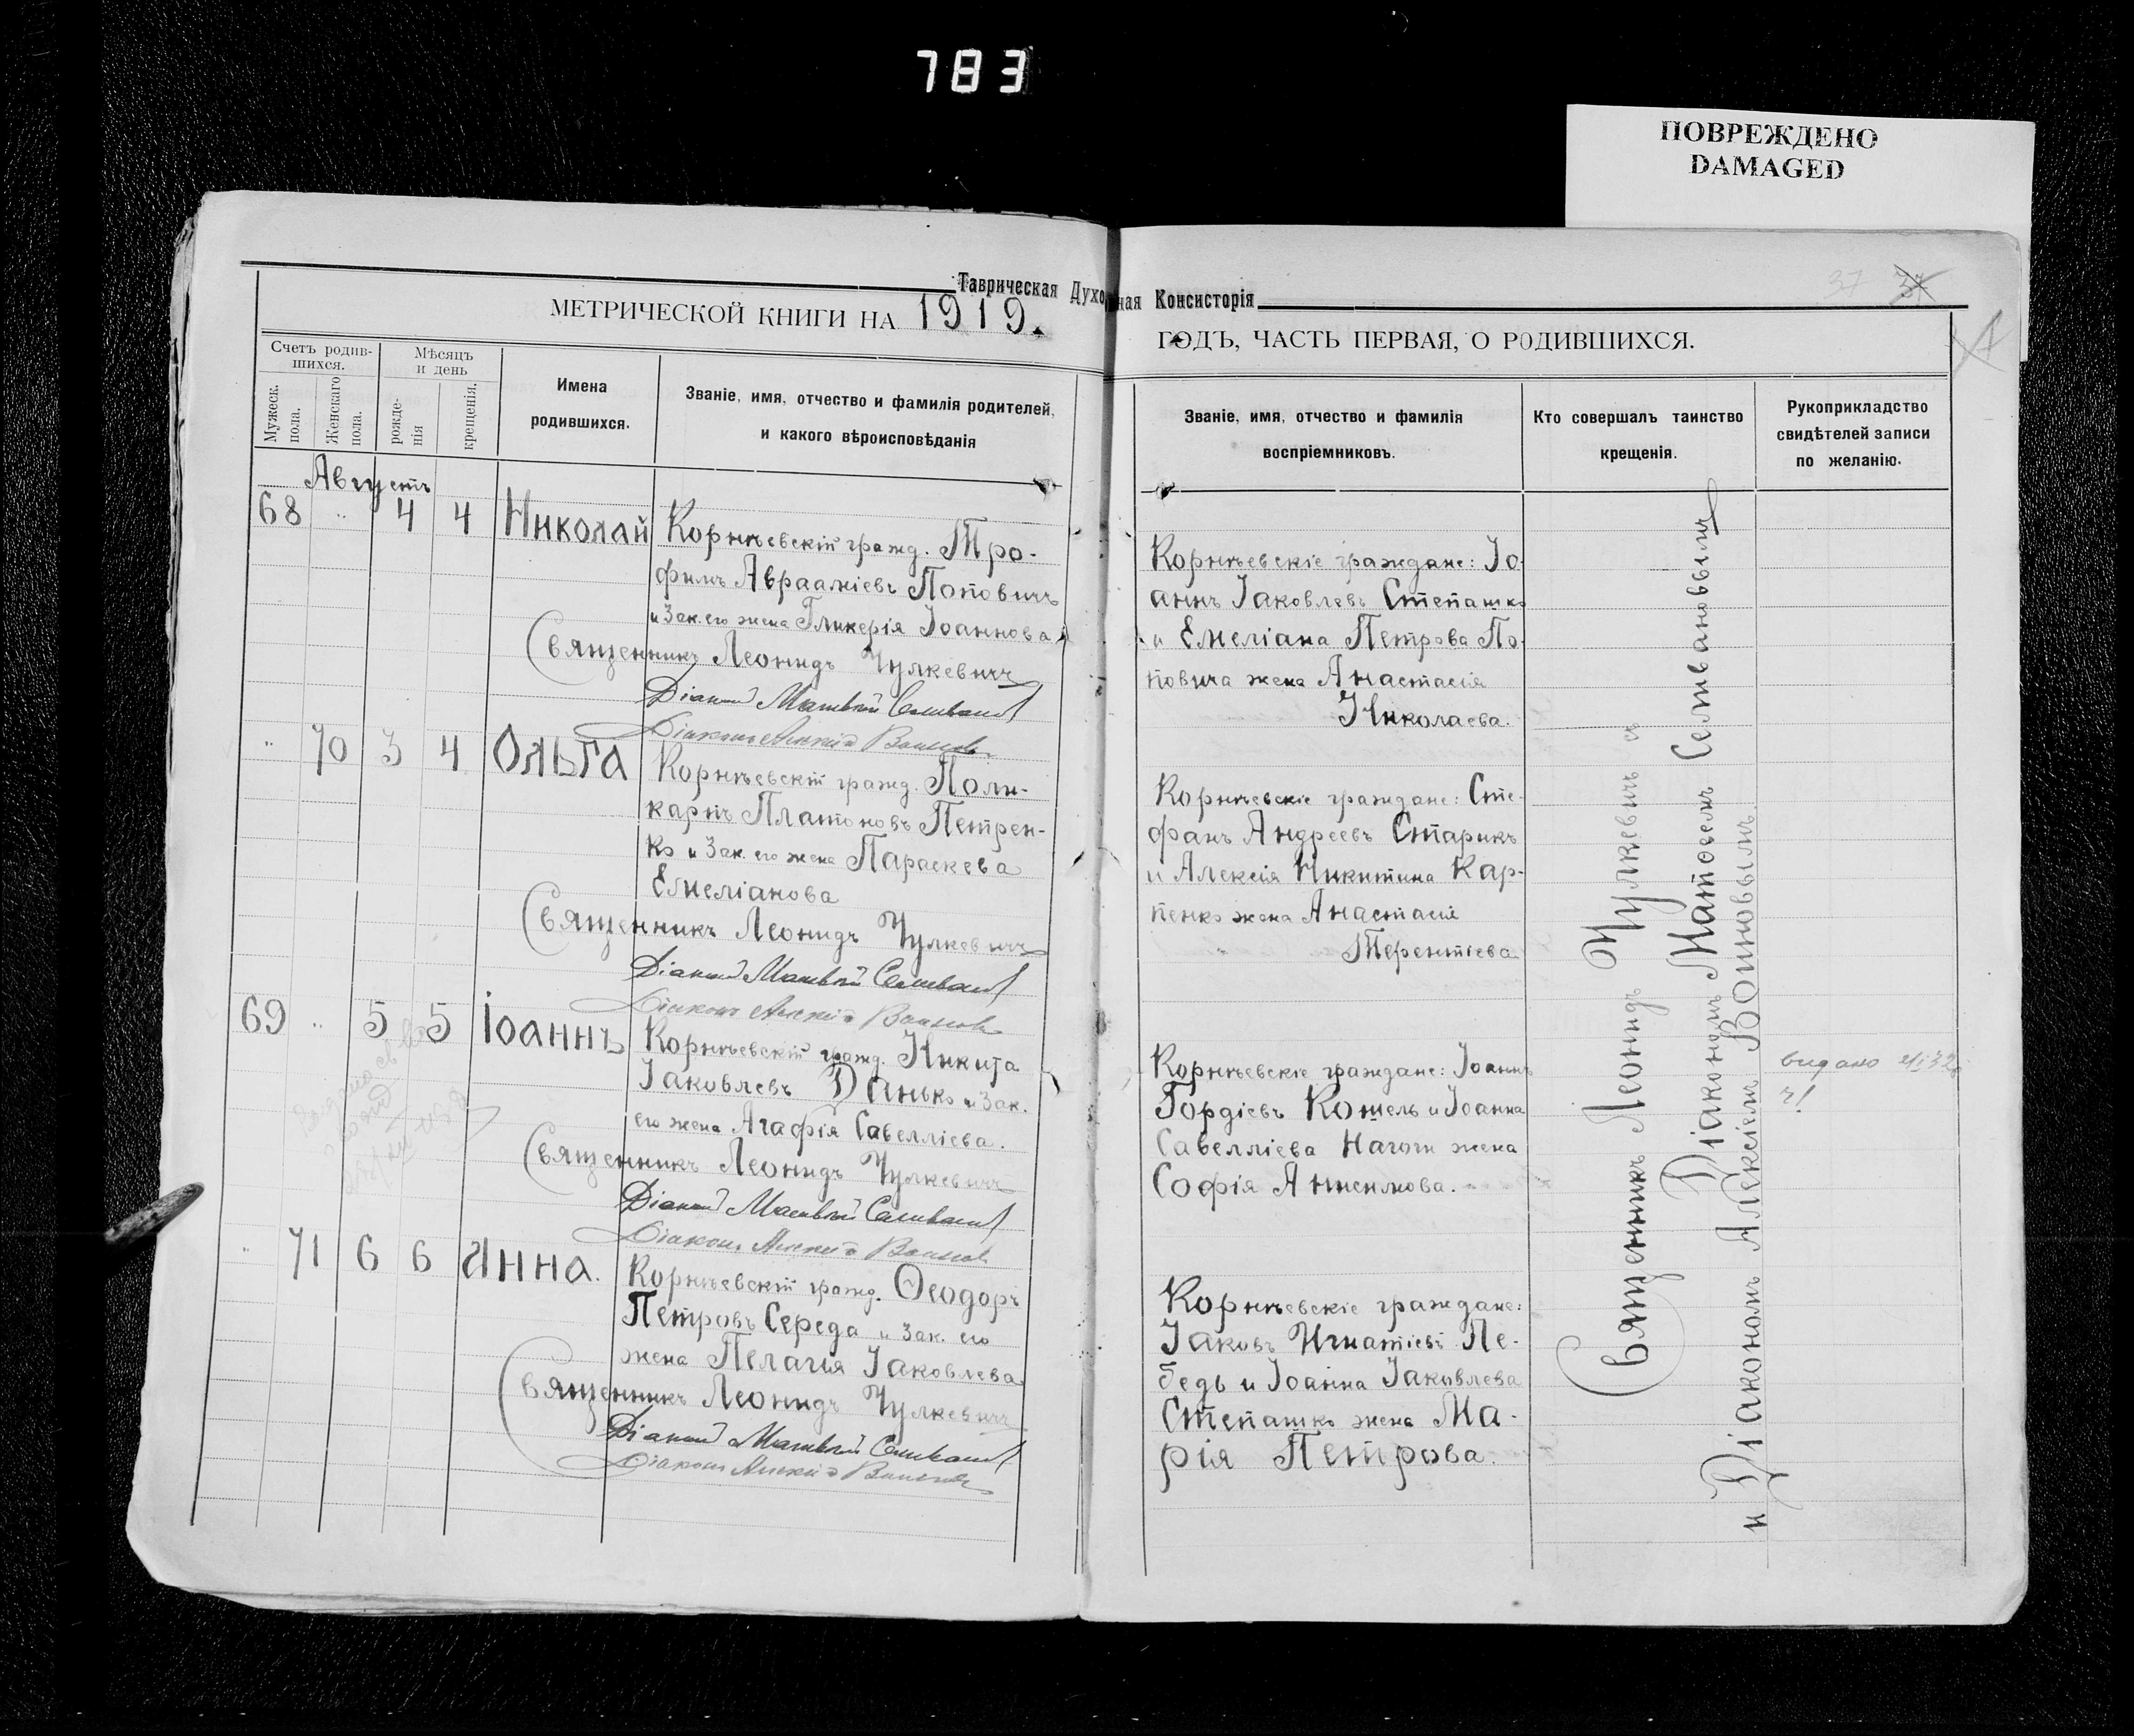 783
ПОВРЕЖДЕНО
DAMAGED
Таврическая Духовная Консисторія
37 37
МЕТРИЧЕСКОЙ КНИГИ НА 1919.
ГОДЪ, ЧАСТЬ ПЕРВАЯ, О РОДИВШИХСЯ.
Счетъ родив-
шихся.
Мужеск.
пола.
Женскаго
пола.
Мѣсяцъ
и день
рожде-
нія
крещенія.
Имена
родившихся.
Званіе, имя, отчество и фамилія родителей,
и какого вѣроисповѣданія
Званіе, имя, отчество и фамилія
воспріемниковъ.
Кто совершалъ таинство
крещенія.
Рукоприкладство
свидѣтелей записи
по желанію.
Августъ
68 " 4 4 Николай
Корнѣевскій гражд. Тро-
фимъ Авраамíевъ Поповичъ
и Зак. его жена Гликерія Іоаннова
Священникъ Леонидъ Чулкевичъ
Діаконъ Матвѣй Селиванов
Діаконъ Алексій Воинов
Корнѣевскіе граждане: Іо-
аннъ Іаковлевъ Степашко
и Емеліана Петрова По-
повича жена Анастасія
Николаева.
" 70 3 4 Ольга
Корнѣевскій гражд. Поли-
карпъ Платоновъ Петрен-
ко и Зак. его жена Параскева
Емеліанова
Священникъ Леонидъ Чулкевичъ
Діаконъ Матвѣй Селиванов
Діаконъ Алексій Воинов
Корнѣевскіе граждане: Сте-
фанъ Андреевъ Старикъ
и Алексія Никитина Кар-
пенко жена Анастасія
Терентіева
69 " 5 5 Іоаннъ
Корнѣевскій гражд. Никита
Іаковлевъ Данько и Зак.
его жена Агафія Савелліева.
Священникъ Леонидъ Чулкевичъ
Діаконъ Матвѣй Селиванов
Діаконъ Алексій Воинов
Корнѣевскіе граждане: Іоаннъ
Гордіевъ Кошель и Іоанна
Савелліева Нагоги жена
Софія Анисимова.
видано
" 71 6 6 Анна.
Корнѣевскій гражд. Ѳеодоръ
Петровъ Середа и Зак. его
жена Пелагия Іаковлева
Священникъ Леонидъ Чулкевичъ
Діаконъ Матвѣй Селиванов
Діаконъ Алексій Воинов
Корнѣевскіе граждане:
Іаковъ Игнатіевъ Ле-
бедь и Іоанна Іаковлева
Степашко жена Ма-
рія Петрова.
Священникъ Леонидъ Чулкевичъ съ
Діакономъ Матѳеемъ Селивановымъ
и Діакономъ Алексіемъ Воиновымъ.